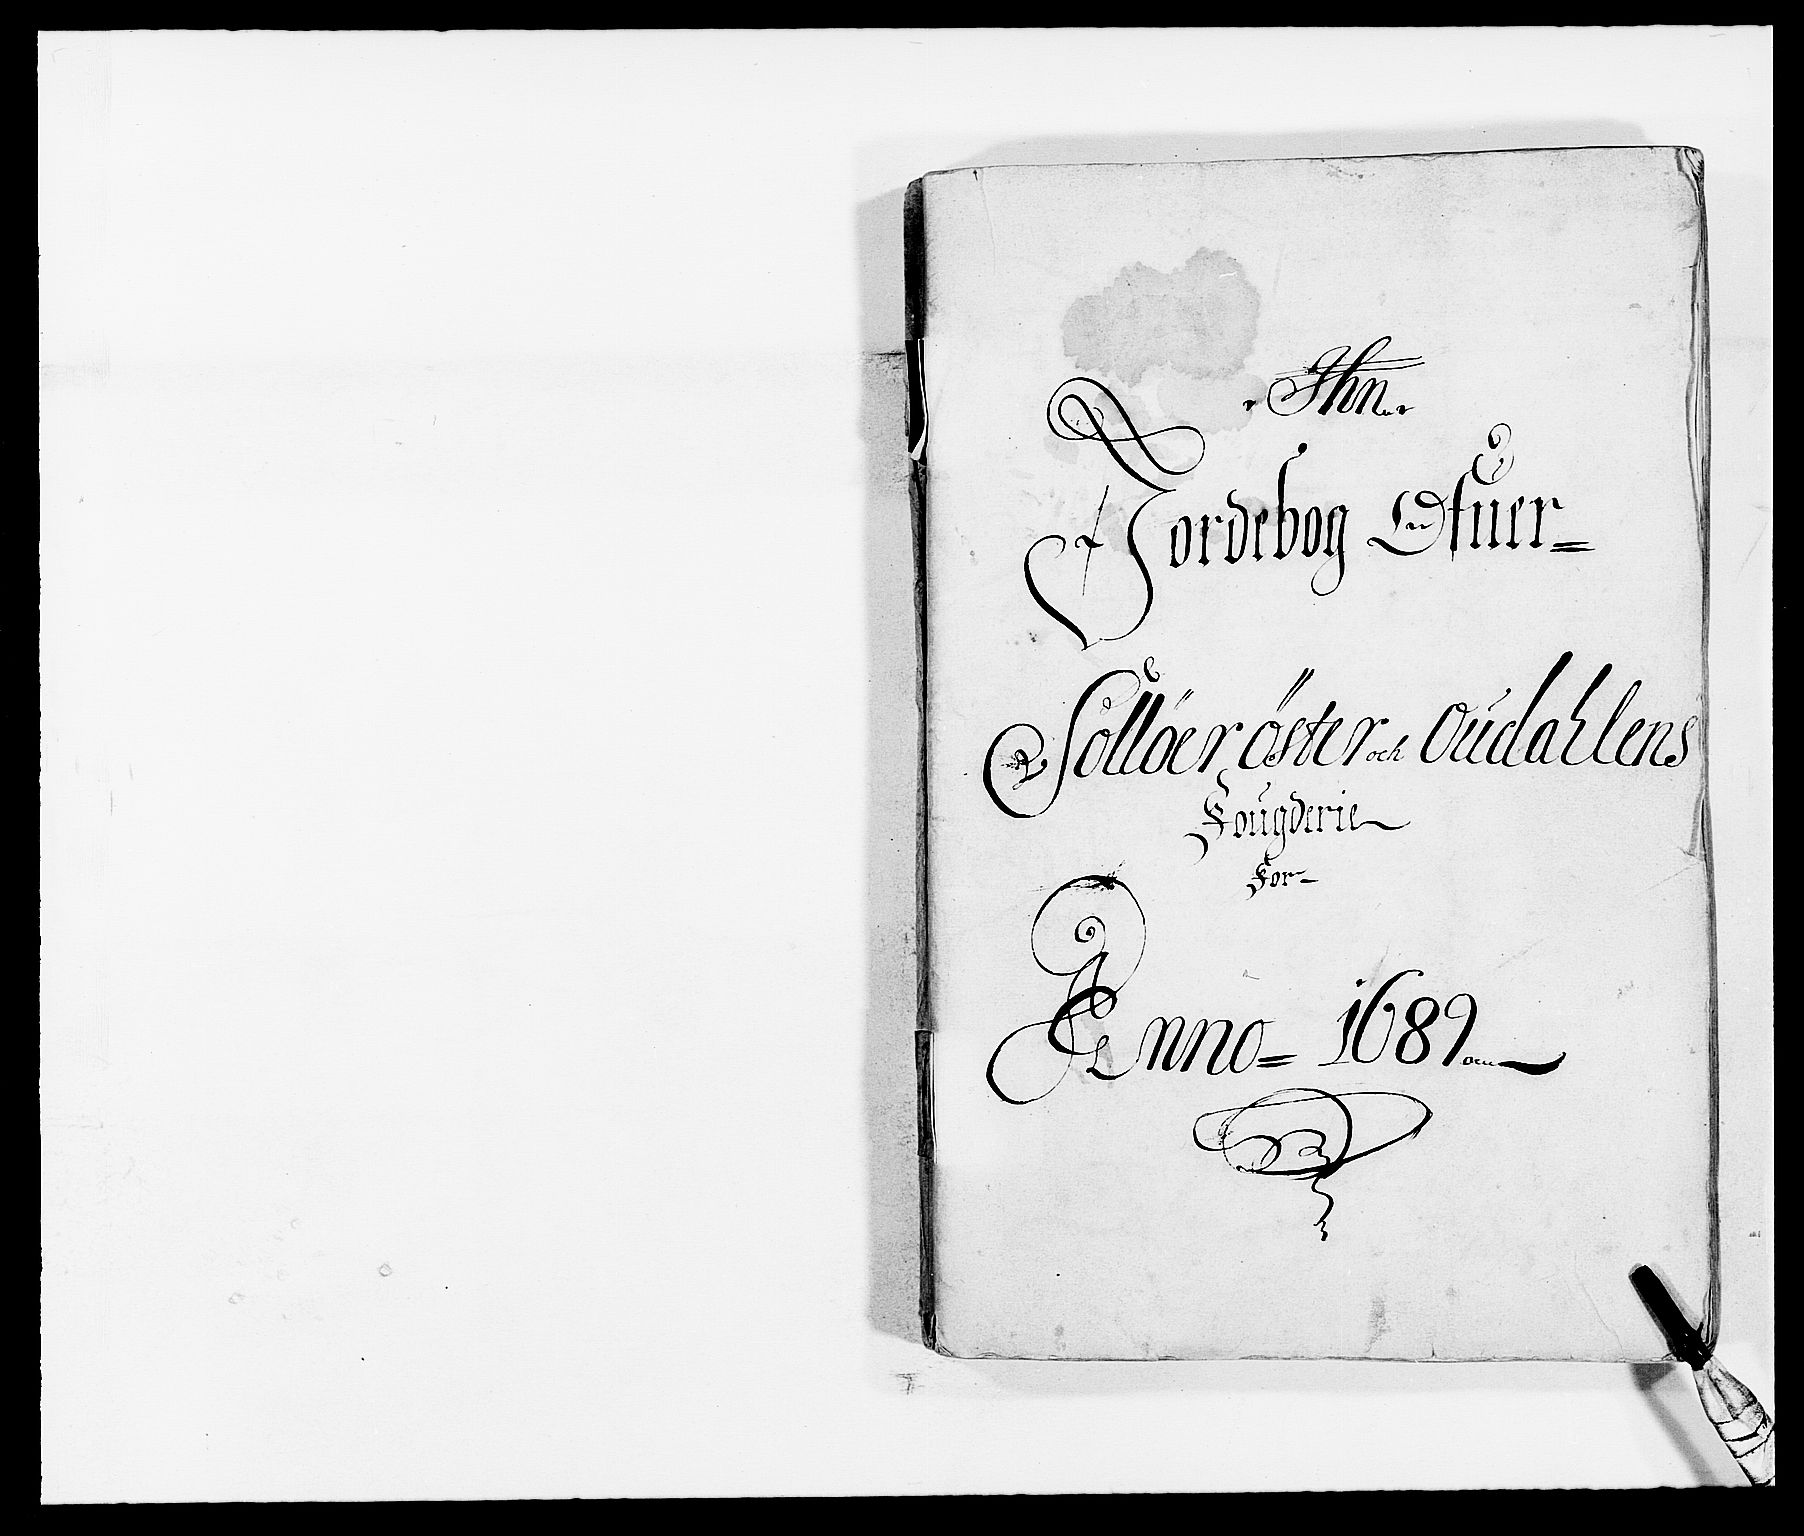 Ihn
Jordebog Ofuer=
Sollöer öster och Oudahlens
Fougderie
For
Anno= 1689